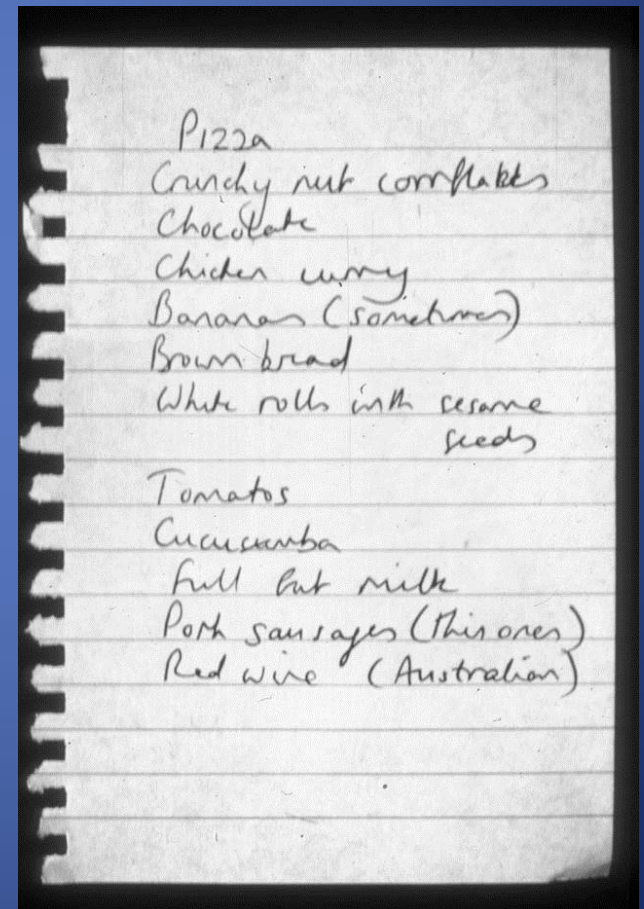 Pizza
Crunchy nut cornflakes
Chocolate
Chicken curry
Bananas (sometimes)
Brown bread
White rolls with sesame
seeds
Tomatos
Cucucumba
Full fat milk
Pork sausages (thin ones)
Red wine (Australian)